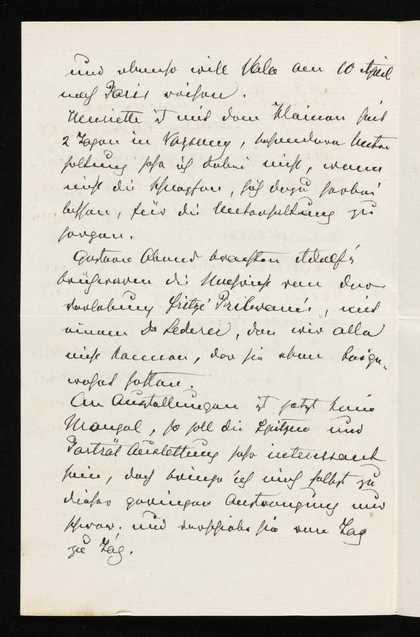 und ebenso will Vale am 10 April
nach Paris reisen.
Henriette ist mit dem Kleinen seit
2 Tagen in, besondere Unter
haltung habe ich dabei nicht, wenn
nicht die, sich dazu herbei
lassen, für die Unterhaltung zu
sorgen.
Gestern Abend brachten Adolf's
die Nachricht von der
Verlobung Fritze, mit
einem Dr Lederer, den wir alle
nicht kennen, der sie eben
hatten.
An Ausstellungen ist jetzt kein
Mangel, so soll die Spitzen und
Porträt Ausstellung sehr interessant
sein, doch bringe ich mich selbst zu
dieser geringen Anstrengung nur
schwer und verschiebe sie von Tag
zu Tag.